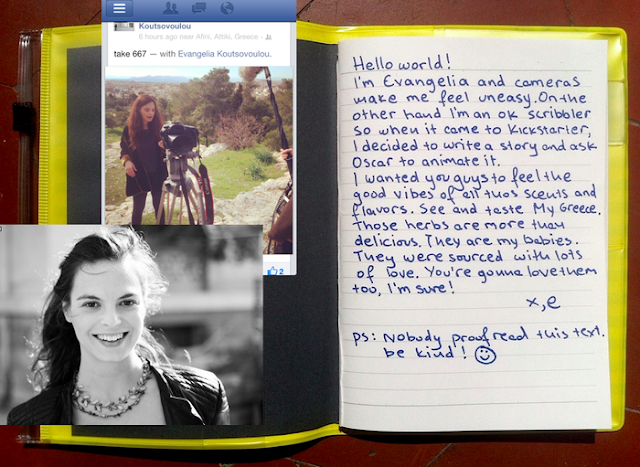 Koutsovoulou
6 hours ago near Afini, Attiki, Greece
take 667 — with Evangelia Koutsovoulou.
2
Hello world!
I'm Evangelia and cameras
make me feel uneasy. On the
other hand I'm an ok scribbler
so when it came to Kickstarter,
I decided to write a story and ask
Oscar to animate it.
I wanted you guys to feel the
good vibes of all thos scents and
flavors. See and taste My Greece.
Those herbs are more than
delicious. They are my babies.
They were sourced with lots
of love. You're gonna love them
too, I'm sure!
x,e
ps: Nobody proofread this text.
be kind!